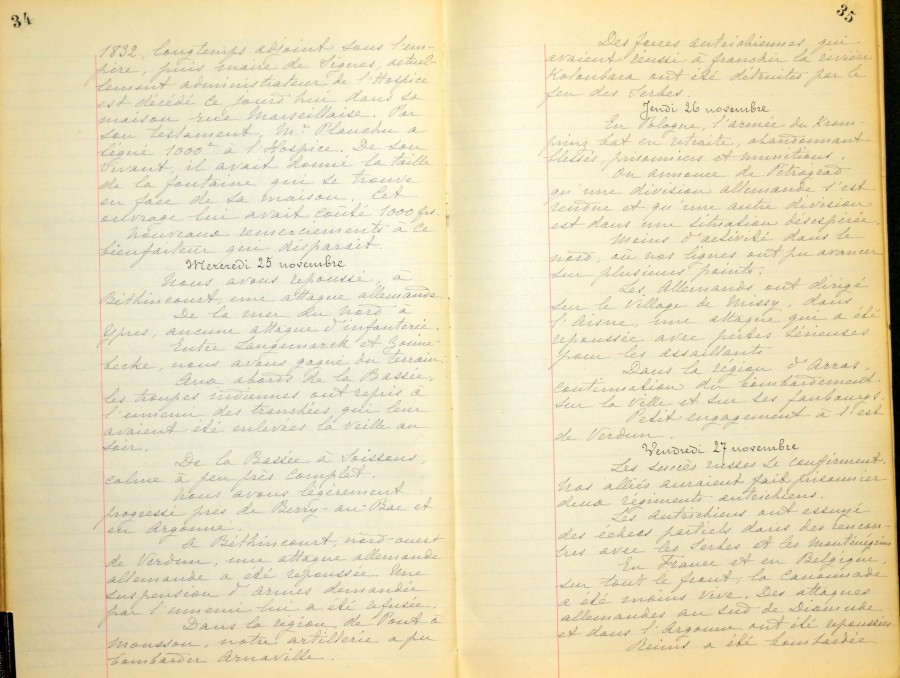 34
1832, longtemps adjoint sous l'em-
pire, puis maire de Signes, actuel-
lement administrateur de l'Hospice
est décédé ce jourd'hui dans sa
maison rue Marseillaise. Par
son testament, Mr Planchu a
légué 1000 à l'Hospice. De son
vivant, il avait donné la taille
de la fontaine qui se trouve
en face de sa maison. Cet
ouvrage lui avait coûté 1000 frs.
Nouveaux remerciements à ce
bienfaiteur qui disparait.
Mercredi 25 novembre
Nous avons repoussé, à
Béthincourt, une attaque allemande.
De la mer du Nord à
Ypres, aucune attaque d'infanterie.
Entre Langemarck et Zonne-
becke, nous avons gagné du terrain.
Aux abords de la Bassée,
les troupes indiennes ont repris à
l'ennemi des tranchées qui leur
avaient été enlevées la veille au
soir.
De la Bassée à Soissons,
calme à peu près complet.
Nous avons légèrement
progressé près de Berry-au-Bac et
en Argonne.
A Béthincourt, nord-ouest
de Verdun, une attaque allemande
allemande a été repoussée. Une
suspension d'armes demandée
par l'ennemi lui a été refusée.
Dans la région de Pont-à
Mousson, notre artillerie a pu
bombarder Arnaville.
35
Des forces autrichiennes, qui
avaient réussi à franchir la rivière
Koloubara ont été détruites par le
feu des Serbes.
Jeudi 26 novembre
En Pologne, l'armée du Kron-
prinz bat en retraite, abandonnant
blessés, prisonniers et munitions.
On annonce de Pétrograd
qu'une division allemande s'est
rendue et qu'une autre division
est dans une situation désespérée.
Moins d'activité dans le
nord, ou nos lignes ont pu avancer
sur plusieurs points.
Les Allemands ont dirigé
sur le village de Missy, dans
l'Aisne, une attaque qui a été
repoussée avec pertes sérieuses
pour les assaillants.
Dans la région d'Arras,
continuation du bombardement
sur la ville et sur ses faubourgs.
Petit engagement à l'est
de Verdun.
Vendredi 27 novembre
Les succès russes se confirment.
Nos alliés auraient fait prisonnier
deux régiments autrichiens.
Les Autrichiens ont essuyé
des échecs partiels dans des rencon-
tres avec les Serbes et les Monténégrins
En France et en Belgique,
sur tout le front, la canonnade
a été moins vive. Des attaques
allemandes au sud de Dixmude
et dans l'Argonne ont été repoussées.
Reims a été bombardée